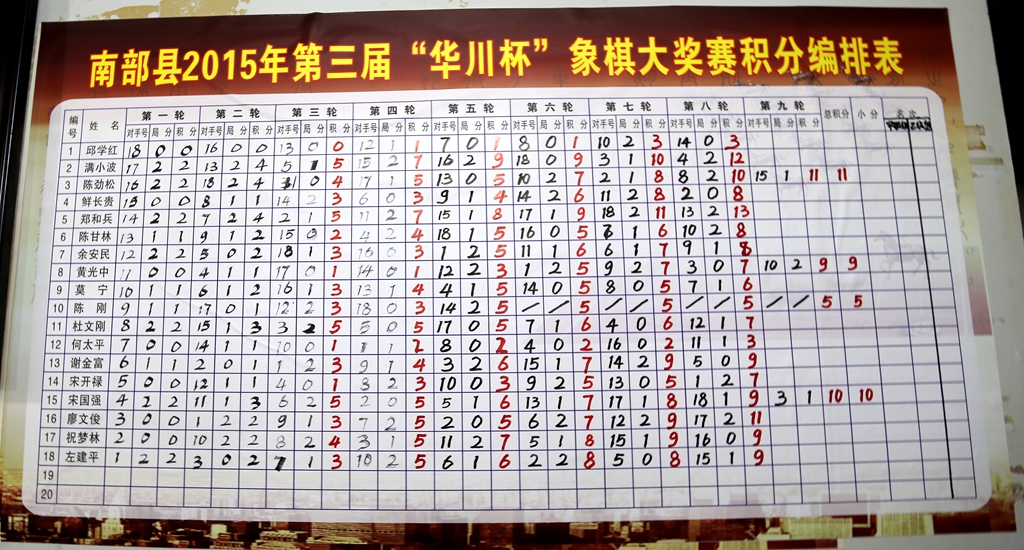 南部县2015年第三届“华川杯”象棋大奖赛积分编排表
编号 姓名 第一轮 第二轮 第三轮 第四轮 第五轮 第六轮 第七轮 第八轮 第九轮 总积分 小分 名次
对手号 局分 积分 对手号 局分 积分 对手号 局分 积分 对手号 局分 积分 对手号 局分 积分 对手号 局分 积分 对手号 局分 积分 对手号 局分 积分 对手号 局分 积分
1 邱学红 18 0 0 16 0 0 13 0 0 12 1 1 7 0 1 8 0 1 10 2 3 14 0 3
2 满小波 17 2 2 13 2 4 5 1 5 15 2 7 16 2 9 18 0 9 3 1 10 4 2 12
3 陈劲松 16 2 2 18 2 4 0 4 17 1 5 13 0 5 10 2 7 2 1 8 8 2 10 15 1 11 11
4 鲜长贵 15 0 0 8 1 1 14 2 3 6 0 3 9 1 4 14 2 6 11 2 8 2 0 8
5 郑和兵 14 2 2 7 2 4 2 1 5 11 2 7 15 1 8 17 1 9 18 2 11 13 2 13
6 陈甘林 13 1 1 9 1 2 15 0 2 4 2 4 18 1 5 16 0 5 7 1 6 10 2 8
7 余安民 12 2 2 5 0 2 18 1 3 16 0 3 1 2 5 11 1 6 6 1 7 9 1 8
8 黄光中 11 0 0 4 1 1 17 0 1 14 0 1 12 2 3 1 2 5 9 2 7 3 0 7 10 2 9 9
9 莫宁 10 1 1 6 1 2 16 1 3 13 1 4 4 1 5 14 0 5 8 0 5 7 1 6
10 陈刚 9 1 1 17 0 1 12 2 3 18 0 3 14 2 5 / / 5 / / 5 / / 5 / / 5 5
11 杜文刚 8 2 2 15 1 3 3 2 5 5 0 5 17 0 5 7 1 6 4 0 6 12 1 7
12 何太平 7 0 0 14 1 1 10 0 1 1 1 2 8 0 2 4 0 2 16 0 2 11 1 3
13 谢金富 6 1 1 2 0 1 1 2 3 9 1 4 3 2 6 15 1 7 14 2 9 5 0 9
14 宋开禄 5 0 0 12 1 1 4 0 1 8 2 3 10 0 3 9 2 5 13 0 5 1 2 7
15 宋国强 4 2 2 11 1 3 6 2 5 2 0 5 5 1 6 13 1 7 17 1 8 18 1 9 3 1 10 10
16 廖文俊 3 0 0 1 2 2 9 1 3 7 2 5 2 0 5 6 2 7 12 2 9 17 2 11
17 祝梦林 2 0 0 10 2 2 8 2 4 3 1 5 11 2 7 5 1 8 15 1 9 16 0 9
18 左建平 1 2 2 3 0 2 7 1 3 10 2 5 6 1 6 2 2 8 5 0 8 15 1 9
19
20